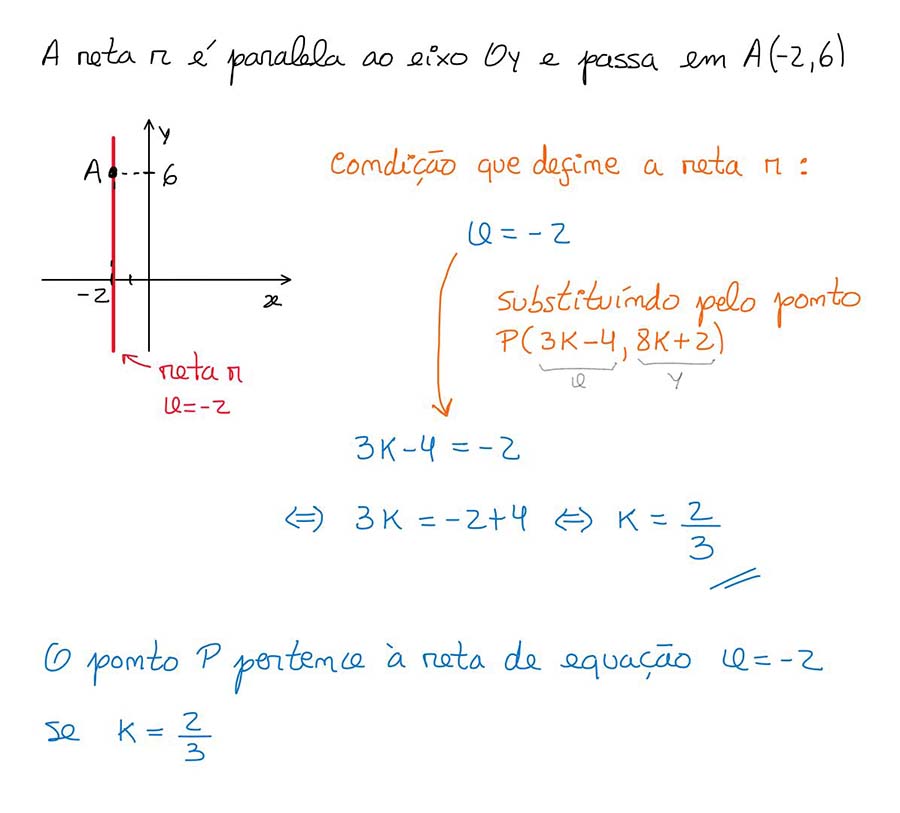 A reta r é paralela ao eixo Oy e passa em A(-2,6)
y
A
6
-2
x
reta r
x=-2
Condição que define a reta r :
x = -2
Substituíndo pelo ponto
P(3K-4, 8K+2)
x
y
3K-4 = -2
⇔ 3K = -2+4 ⇔ K = 2/3
O ponto P pertence à reta de equação x = -2
se K = 2/3